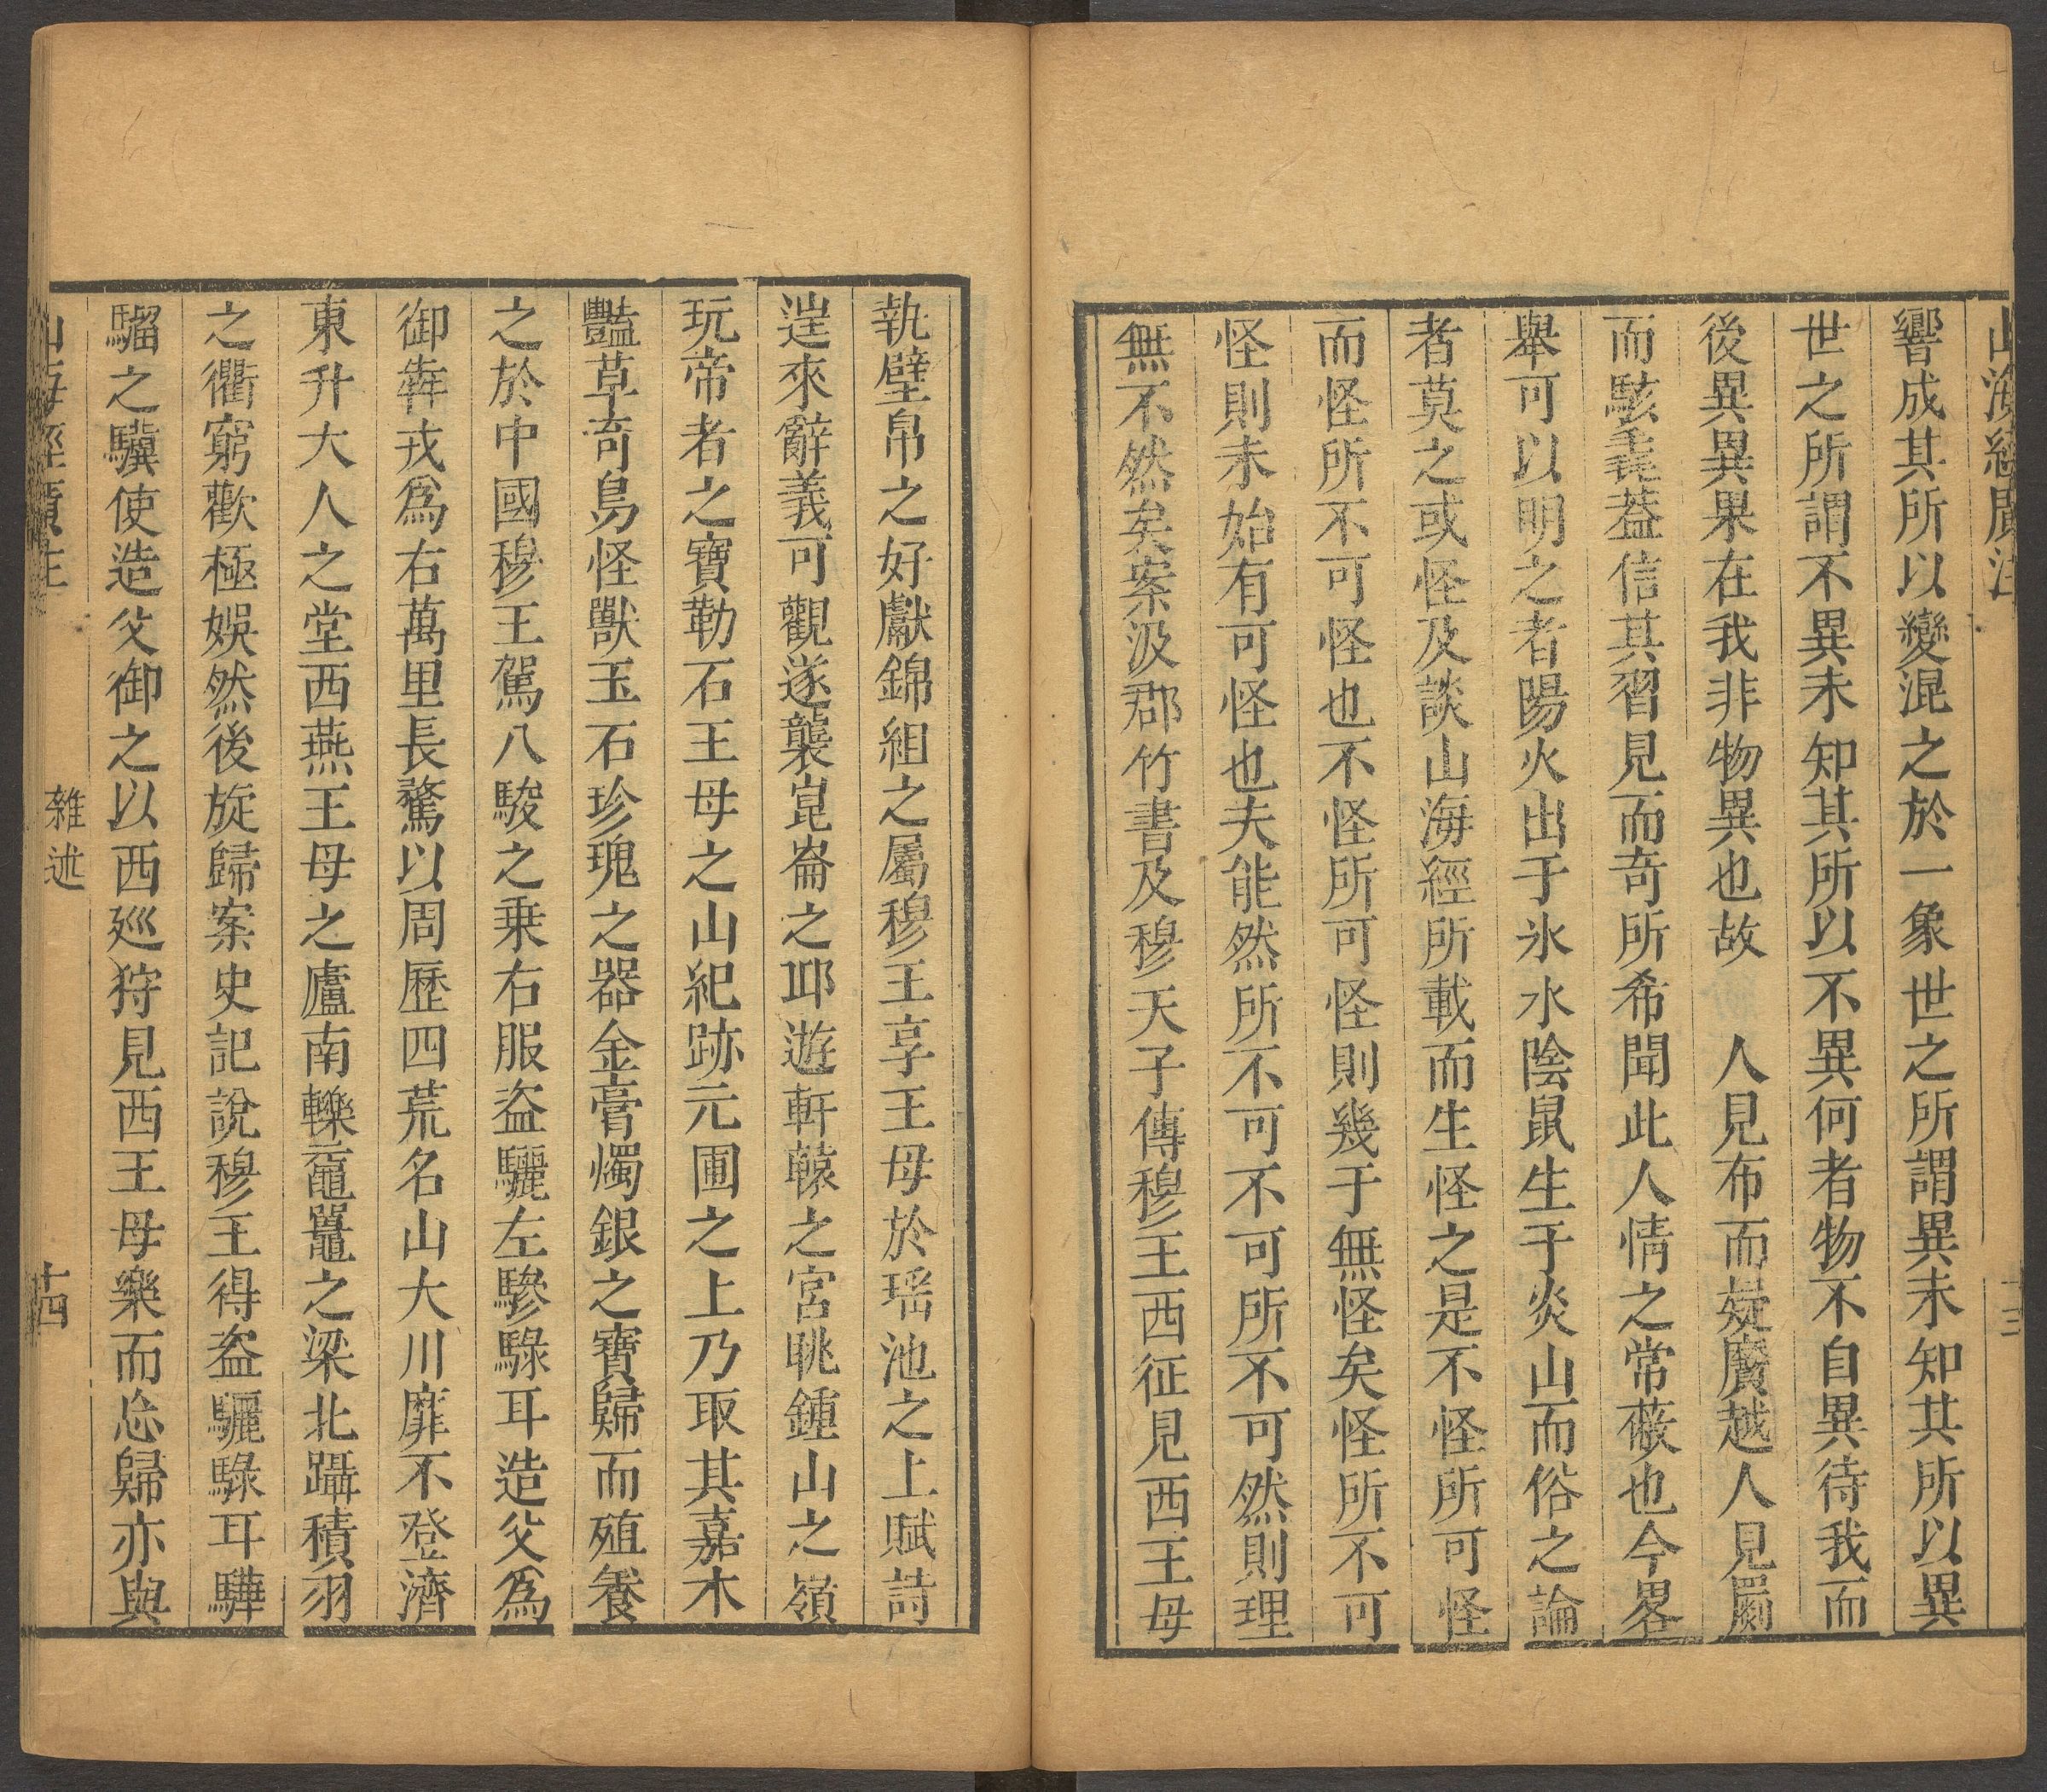 山海經廣注
十三
響成其所以變混之於一象世之所謂異未知其所以異
世之所謂不異未知其所以不異何者物不自異待我而
後異異果在我非物異也故 人見布而疑黂越人見罽
而駭毳葢信其習見而奇所希聞此人情之常蔽也今畧
舉可以明之者陽火出于氷水陰鼠生于炎山而俗之論
者莫之或怪及談山海經所載而生怪之是不怪所可怪
而怪所不可怪也不怪所可怪則幾于無怪矣怪所不可
怪則未始有可怪也夫能然所不可不可所不可然則理
無不然矣案汲郡竹書及穆天子傳穆王西征見西王母
執璧帛之好獻錦組之屬穆王享王母於瑶池之上賦詩
逞來辭義可觀遂襲崑崙之邱遊軒轅之宮眺鍾山之嶺
玩帝者之寶勒石王母之山紀跡元圃之上乃取其嘉木
豔草奇鳥怪獸玉石珍瑰之器金膏燭銀之寶歸而殖養
之於中國穆王駕八駿之乗右服盗驪左驂騄耳造父爲
御犇戎爲右萬里長騖以周歷四荒名山大川靡不登濟
東升大人之堂西燕王母之廬南轢黿鼉之梁北躡積羽
之衢窮歡極娛然後旋歸案史記說穆王得盗驪騄耳驊
騮之驥使造父御之以西廵狩見西王母樂而忘歸亦與
山海經廣注
雜述
十四